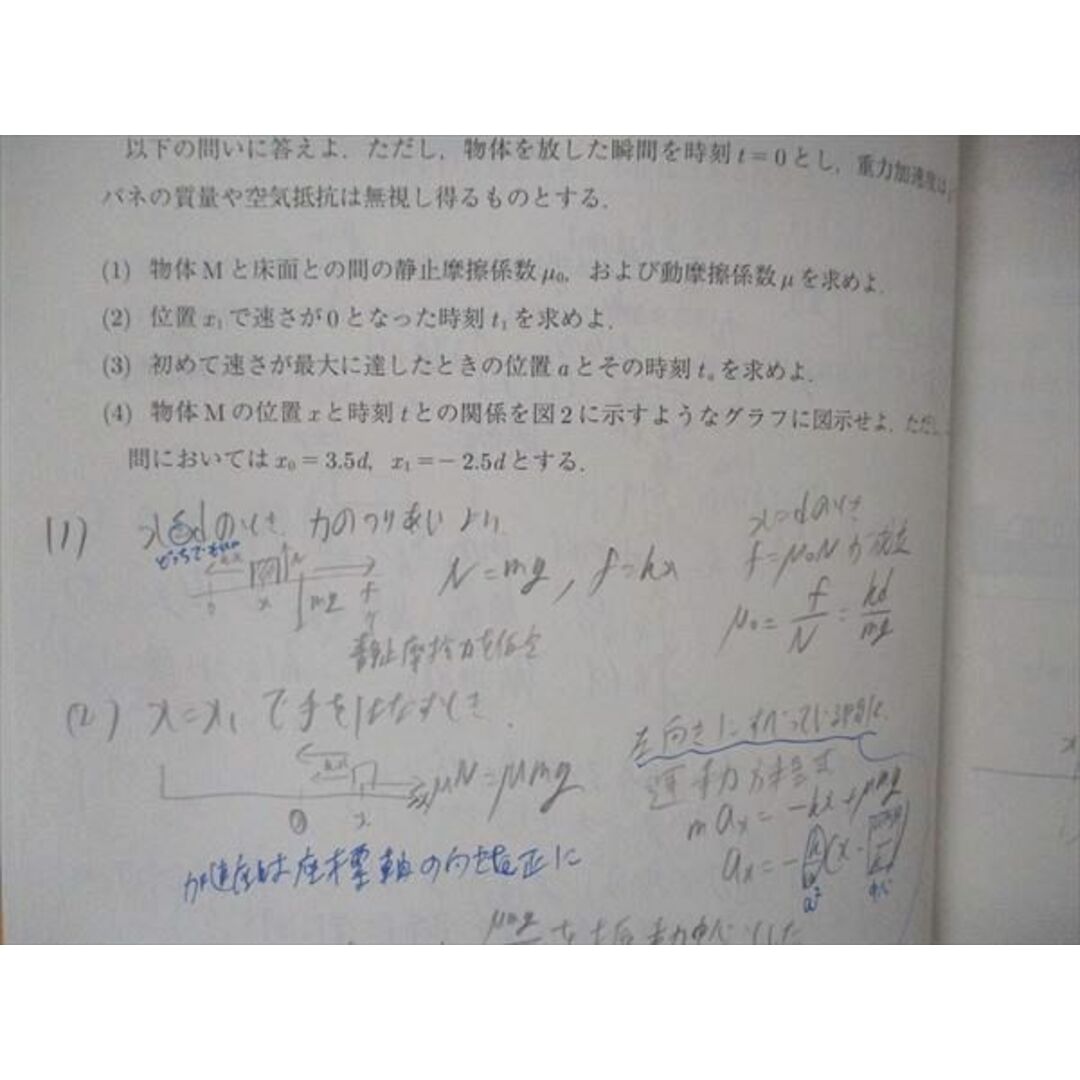 以下の問いに答えよ．ただし，物体を放した瞬間を時刻 t＝0 とし，重力加速度は
バネの質量や空気抵抗は無視し得るものとする．
(1) 物体Mと床面との間の静止摩擦係数μ₀，および動摩擦係数μを求めよ．
(2) 位置x₁で速さが0となった時刻t₁を求めよ．
(3) 初めて速さが最大に達したときの位置aとその時刻tₐを求めよ．
(4) 物体Mの位置xと時刻tとの関係を図2に示すようなグラフに図示せよ．ただし
間においてはx₀＝3.5d，x₁＝－2.5dとする．
(1) 力のつりあいより
N=mg, f=kx
x=dのとき
f=μ₀Nが成立
μ₀= f/N = kd/mg
静止摩擦力を仮定
(2) x=x₁で手をはなすとき
左向きにすべっている
運動方程式
μN=μmg
max=-kx+μmg
加速度は座標軸の向きを正に